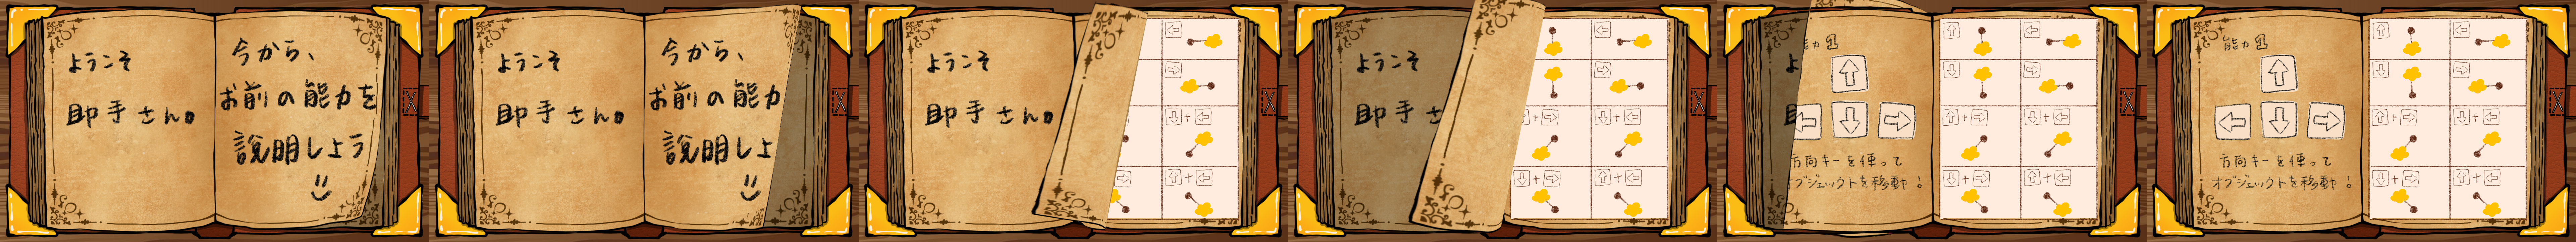 ようこそ
助手さん。
今から、
お前の能力を
説明しよう
ようこそ
助手さん。
今から、
お前の能力
説明しよ
ようこそ
助手さん。
ようこそ
助手さ
能力1
方向キーを使って
オブジェクトを移動!
能力1
方向キーを使って
オブジェクトを移動!